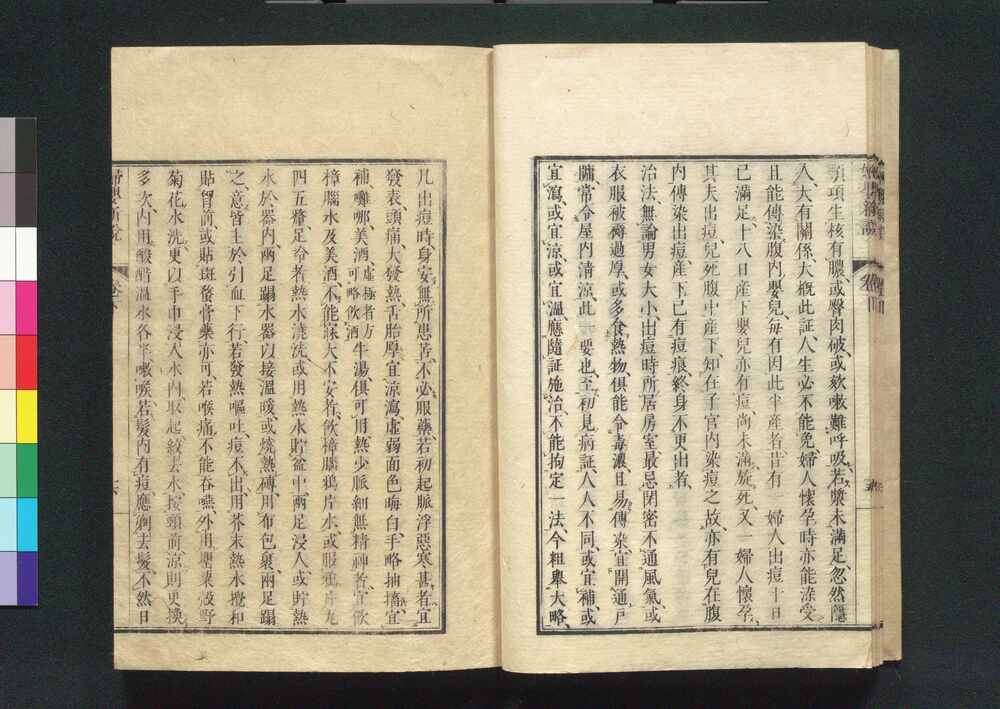 頸項生核有膿或臀肉破或欬嗽難呼吸若漿未滿足忽然隱
入大有關係大槪此証人生必不能免婦人懷孕時亦能染受
且能傳染腹內嬰兒每有因此半產者昔有一婦人出痘十日
已滿足十八日產下嬰兒亦有痘尚未滿旋死又一婦人懷孕
其夫出痘兒死腹中產下知在子宮內染痘之故亦有兒在腹
內傳染出痘產下已有痘痕終身不更出者
治法無論男女大小出痘時所居房室最忌閉密不通風氣或
衣服被褥過厚或多食熱物俱能令毒濃且易傳染宜開通戶
牖常令屋內清涼此一要也至初見病証人人不同或宜補或
宜瀉或宜涼或宜溫應隨証施治不能拘定一法今粗舉大略
凡出痘時身安無所患苦不必服藥若初起脈浮惡寒甚者宜
發表頭痛大發熱舌胎厚宜涼瀉虛弱面色晦白手略抽搐宜
補囉㗂美酒虛極者方可略飲酒牛湯俱可用熱少脈細無精神者宜飲
樟腦水及美酒不能寐大不安者飲樟腦鴉片水或服鴉片丸
四五釐足冷者熱水洗或用熱水貯盆中兩足浸入或貯熱
水於器內兩足蹋水器以接溫暖或燒熱磚用布包裹兩足蹋
之意皆主於引血下行若發熱嘔吐痘不出用芥末熱水攪和
貼胃前或貼斑蝥膏藥亦可若喉痛不能吞嚥外用罌粟殼野
菊花水洗更以手巾浸入水內取起絞去水按頸前涼則更換
多次內用酸醋溫水各半嗽喉若髮內有痘應剃去髮不然日